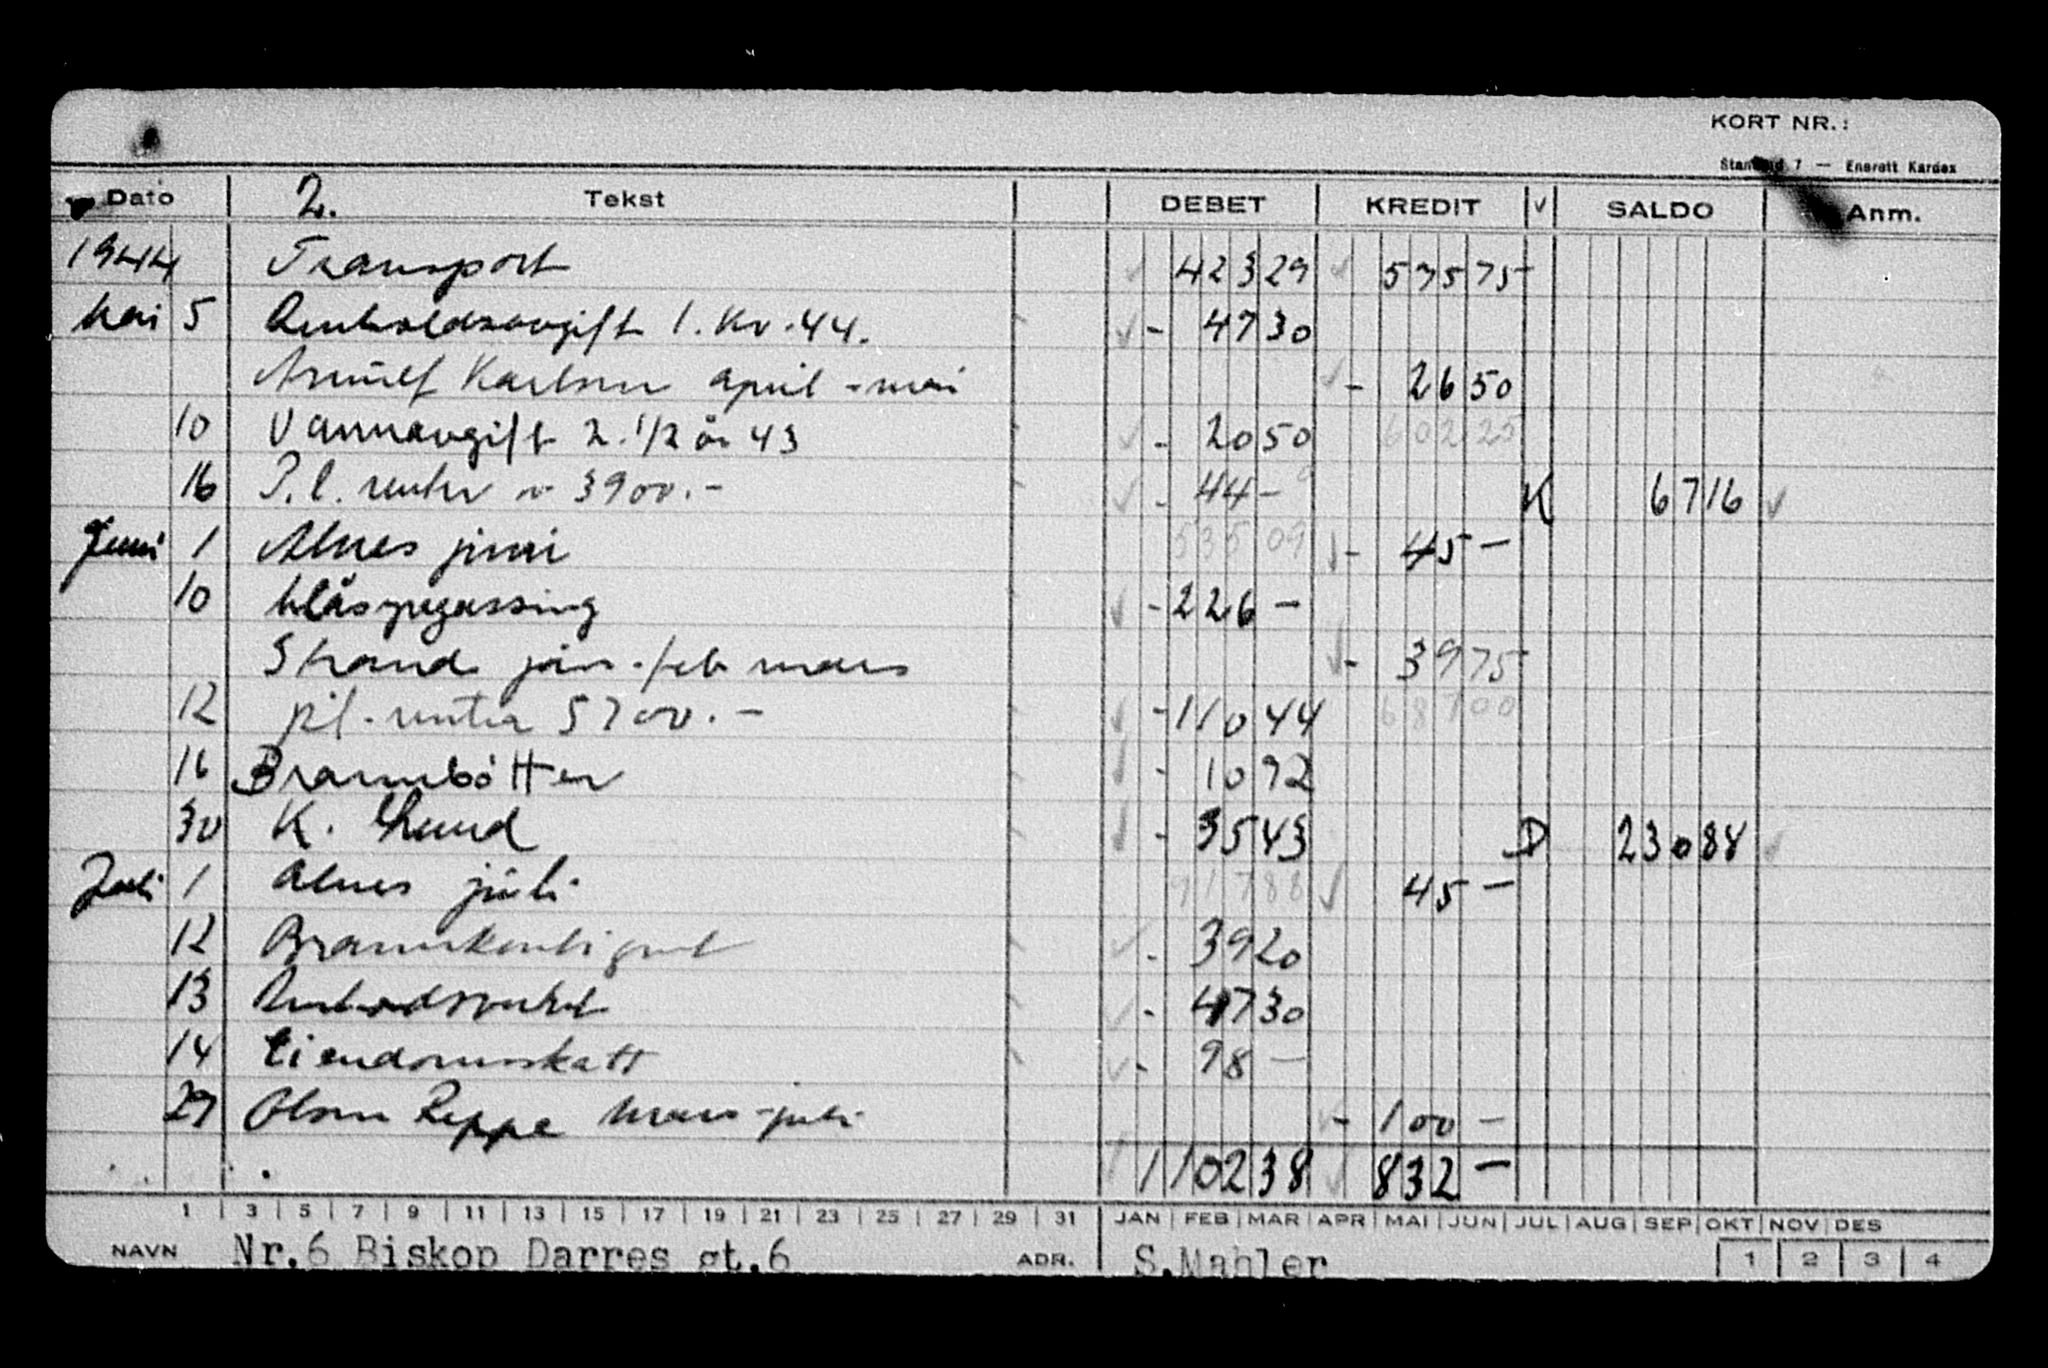 KORT NR.:
Standard 7 — Enerett Kardex
Dato 2. Tekst DEBET KREDIT v SALDO Anm.
1944 Transport 423 29 575 75
Mai 5 Renholdsavgift 1. kv. 44. - 47 30
Arnulf Karlsen april - mai - 26 50
10 Vannavgift 2. 1/2 år 43 - 20 50 602 25
16 P.l. renter av 3900.- - 44 - K 67 16
Juni 1 Alnes juni 535 09 - 45 -
10 - 226 -
Strand jan. feb mars - 39 75
12 p.l. renter 5700.- - 110 44 687 00
16 Brannbøtter - 10 92
30 K. Lund - 35 43 D 230 88
Juli 1 Alnes juli 917 88 45 -
12 Brannkontigent - 39 20
13 Renholdsverket - 47 30
14 Eiendomsskatt - 98 -
29 Olsen Reppe mars - juli - 100 -
1102 38 832 -
1 3 5 7 9 11 13 15 17 19 21 23 25 27 29 31 JAN FEB MAR APR MAI JUN JUL AUG SEP OKT NOV DES
NAVN Nr.6 Biskop Darres gt.6 ADR. S.Mahler 1 2 3 4